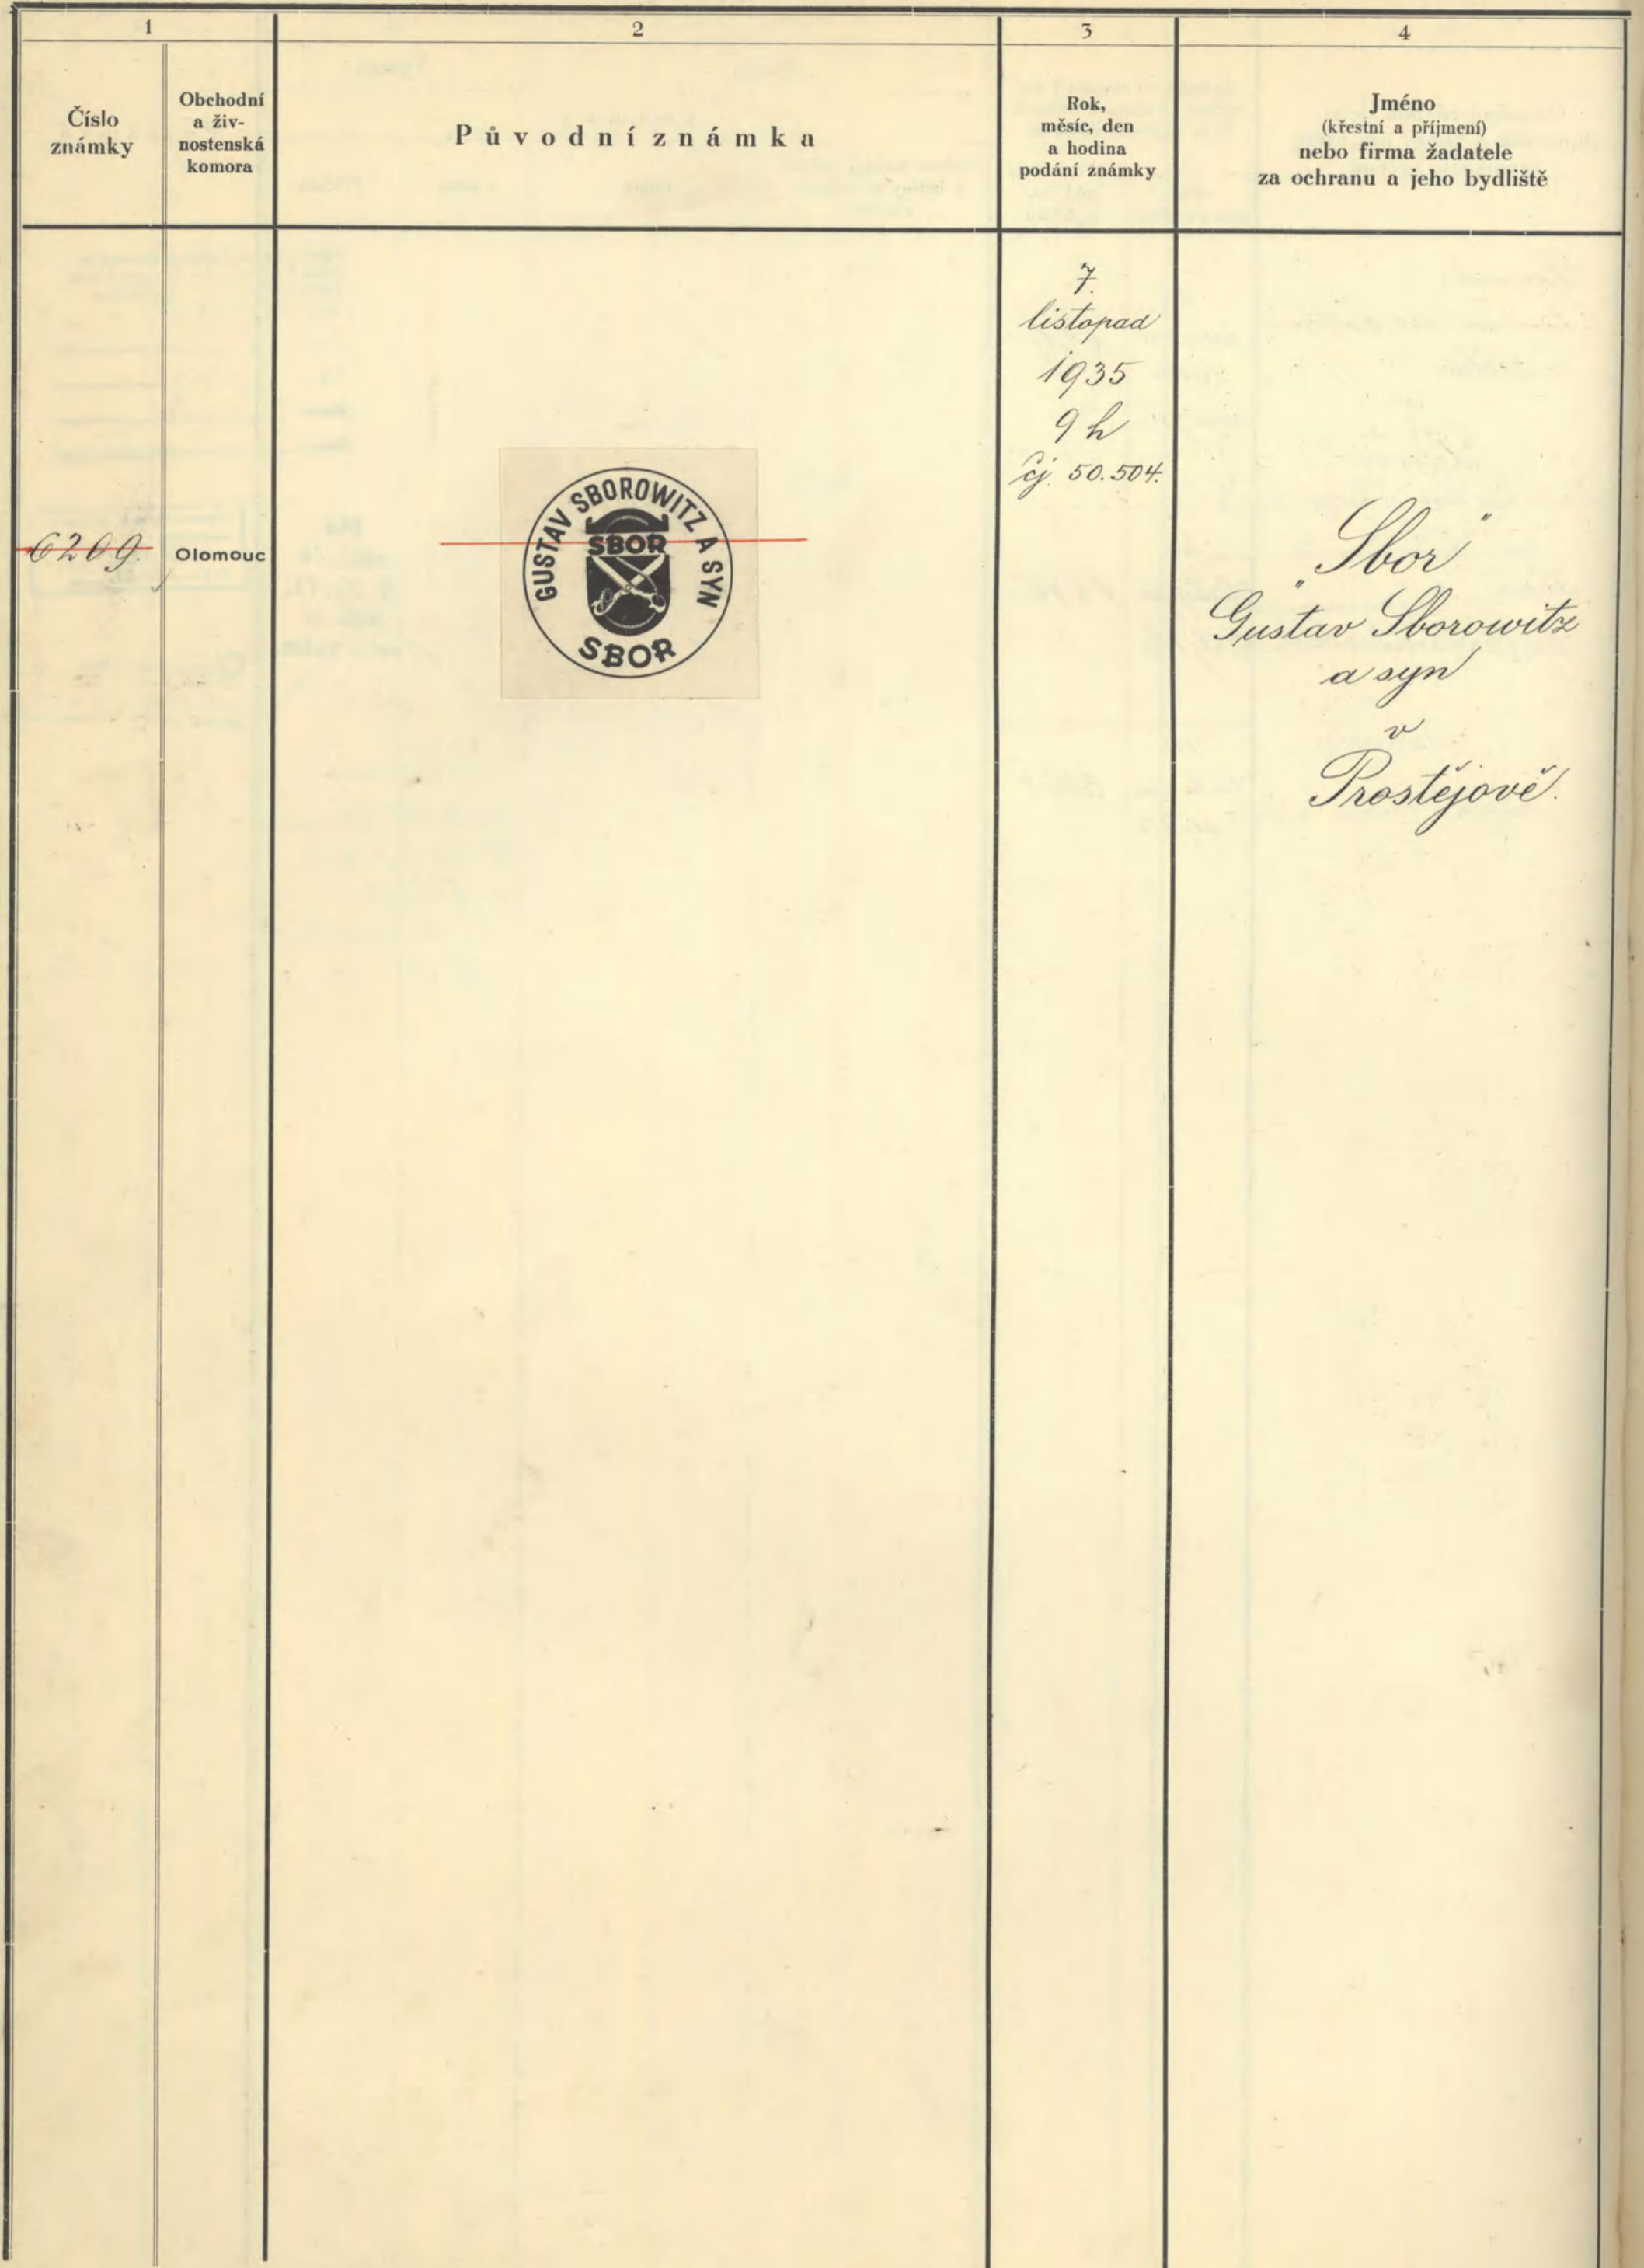 1
2
3
4
Číslo
známky
Obchodní
a živ-
nostenská
komora
Původní známka
Rok,
měsíc, den
a hodina
podání známky
Jméno
(křestní a příjmení)
nebo firma žadatele
za ochranu a jeho bydliště
6209.
Olomouc
GUSTAV SBOROWITZ A SYN
SBOR
SBOR
7.
listopad
1935
9 h
čj. 50.504.
"Sbor"
Gustav Sborowitz
a syn
v
Prostějově.